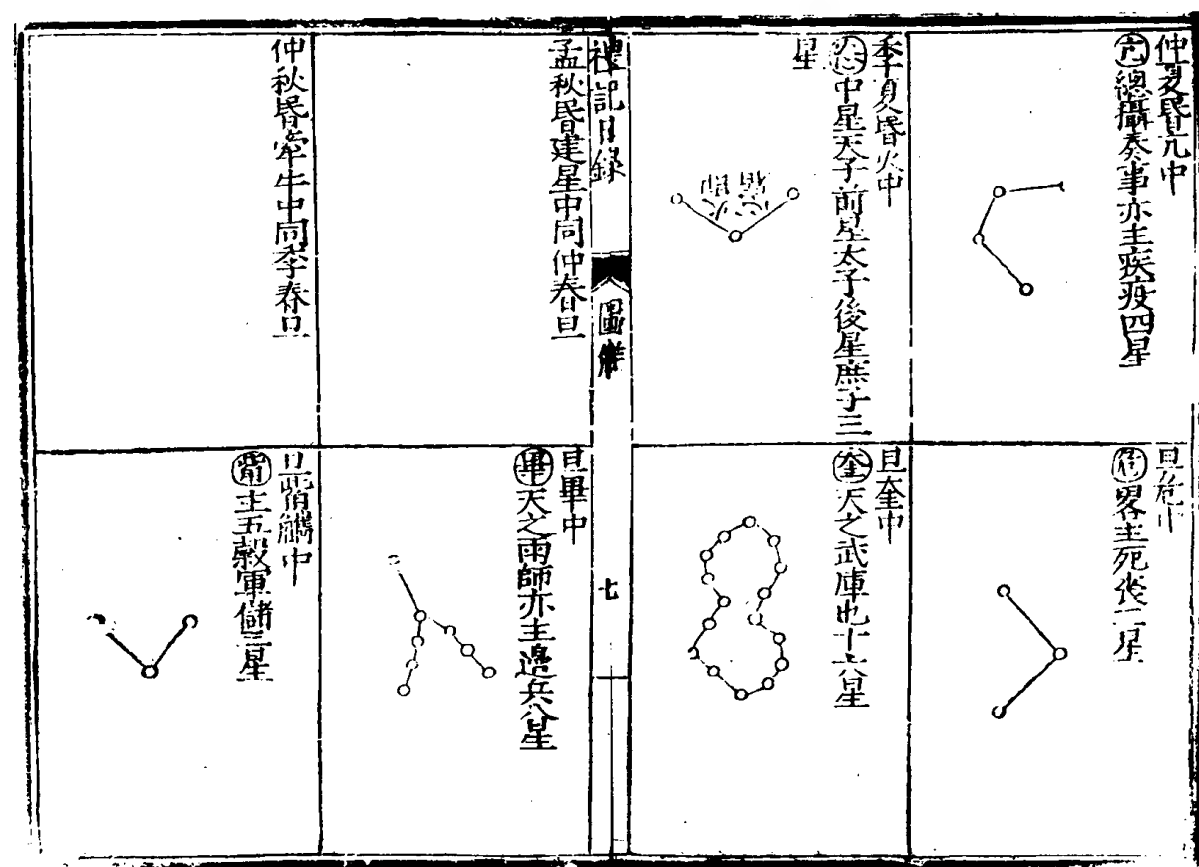 仲夏昏亢中
亢總攝奏事亦主疾疫四星
旦危中
危畧主死喪三星
季夏昏火中
心中星天子前星太子後星庶子三
星
心火
旦奎中
奎天之武庫也十六星
禮記目錄
圖解
七
孟秋昏建星中同仲春旦
旦畢中
畢天之雨師亦主邊兵八星
仲秋昏牽牛中同季春旦
旦觜觿中
觜主五穀軍儲三星